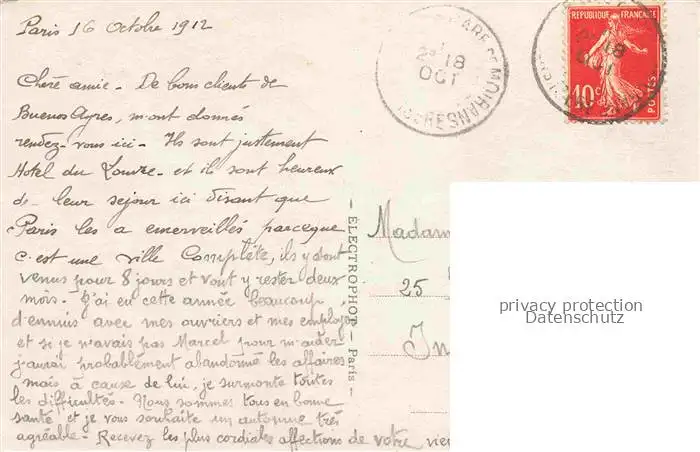 Paris 16 Octobre 1912
Chère amie - De bons clients de
Buenos Ayres, m'ont donnés
rendez-vous ici - Ils sont justement
Hotel du Louvre - et il sont heureux
de leur sejour ici disant que
Paris les a emerveillés parceque
c'est une ville Complète, ils y sont
venus pour 8 jours et vont y rester deux
mois - J'ai eu cette année beaucoup
d'ennuis avec mes ouvriers et mes employes
et si je n'avais pas Marcel pour m'aider
j'aurai probablément abandonné les affaires
mais à cause de lui, je surmonte toutes
les difficultés - Nous sommes tous en bonne
santé et je vous souhaite un automne très
agréable - Recevez les plus cordiales affections de votre vie
GARE DE MOIRANS
18
OCT
ISÈRE
REPUBLIQUE FRANÇAISE
10c
POSTES
ELECTROPHOT - Paris -
Madam
25
privacy protection
Datenschutz